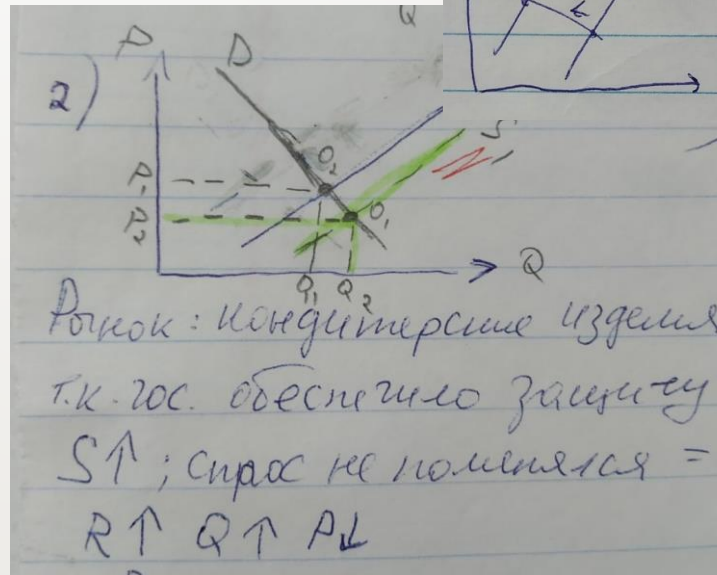 Q
P
D
2)
S₁
O₂
P₁
O₁
P₂
Q₁ Q₂
Q
Рынок: кондитерские изделия
т.к. гос. обеспечило защиту
S↑; спрос не поменялся =
R↑ Q↑ P↓